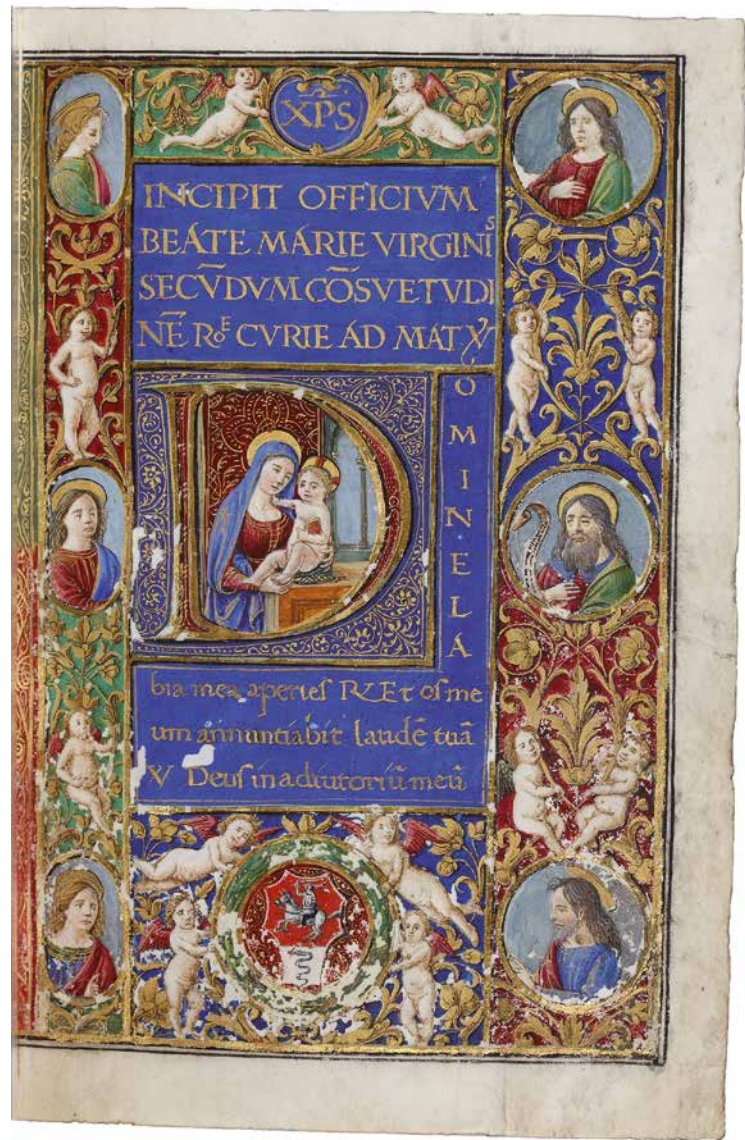 XP̅S
INCIPIT OFFICIVM
BEATE MARIE VIRGINIS
SECV̅DVM CO̅SVETVDI
NE̅ RoE CVRIE AD MAT
OMINE LA
D
bia mea aperies ℟ Et os me
um annuntiabit laudē tuā
V Deus in adiutoriū meū